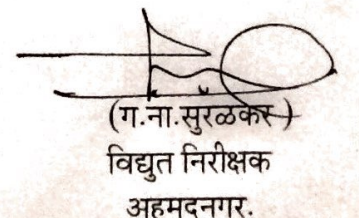 (ग.ना.सुरळकर)
विद्युत निरीक्षक
अहमदनगर.